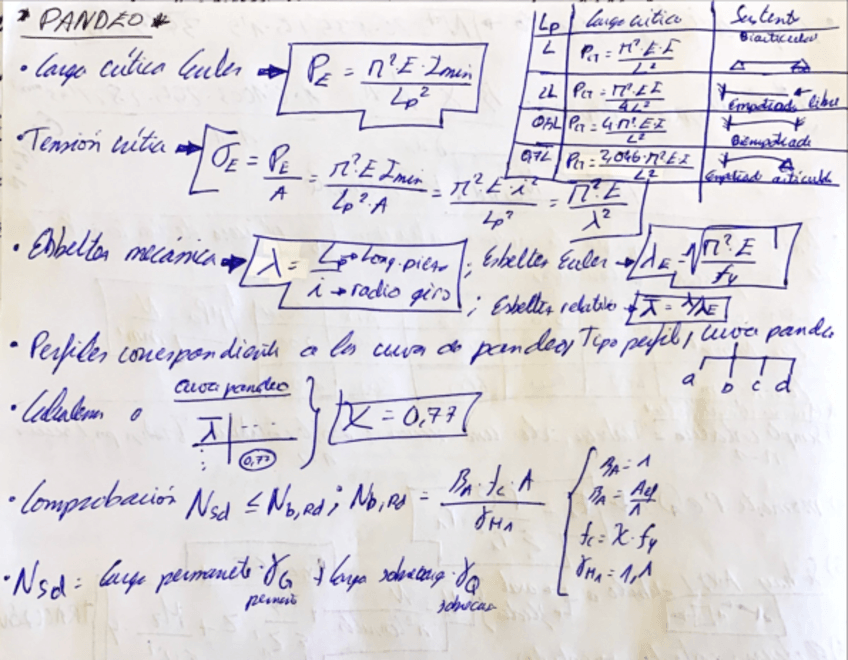 * PANDEO *
• Carga crítica Euler → P_E = π²·E·I_min / L_p²
L_p | Carga crítica | Sustento
L | P_cr = π²·E·I / L² | Biarticulado
2L | P_cr = π²·E·I / 4L² | Empotrado libre
0,5L | P_cr = 4π²·E·I / L² | Biempotrado
0,7L | P_cr = 2,046·π²·E·I / L² | Empotrado articulado
• Tensión crítica → σ_E = P_E / A = π²·E·I_min / L_p²·A = π²·E·i² / L_p² = π²·E / λ²
• Esbeltez mecánica → λ = L_p → Long. pieza / i → radio giro ; Esbeltez Euler → λ_E = √(π²·E / f_y)
; Esbeltez relativa → λ̄ = λ/λ_E
• Perfiles correspondiente a los curva de pandeo, Tipo perfil, curva pandeo
a b c d
• Calculamos o curva pandeo
λ̄ 0,77 } χ = 0,77
• Comprobación N_sd ≤ N_b,Rd ; N_b,Rd = β_A · f_c · A / γ_M1
β_A = 1
β_A = A_ef / A
f_c = χ · f_y
γ_M1 = 1,1
• N_sd = carga permanente · γ_G + carga sobrecarg · γ_Q